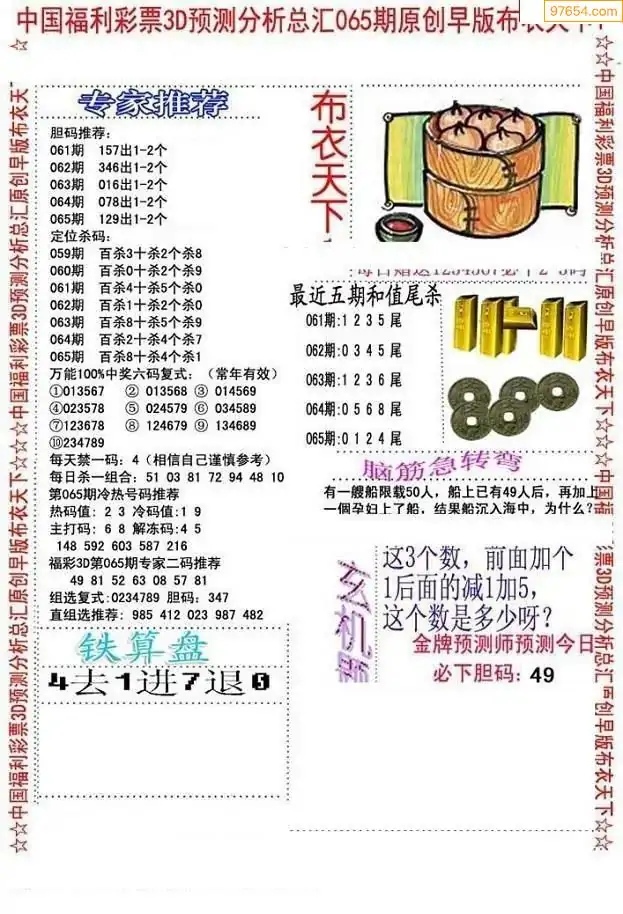 中国福利彩票3D预测分析总汇065期原创早版布衣天下
97654.com
☆☆中国福利彩票3D预测分析总汇原创早版布衣天下☆☆中国福利彩票3D预测分析总汇原创早版布衣天
专家推荐
胆码推荐：
061期 157出1-2个
062期 346出1-2个
063期 016出1-2个
064期 078出1-2个
065期 129出1-2个
定位杀码：
059期 百杀3十杀2个杀8
060期 百杀0十杀2个杀9
061期 百杀4十杀5个杀0
062期 百杀1十杀2个杀0
063期 百杀8十杀5个杀9
064期 百杀2十杀4个杀7
065期 百杀8十杀4个杀1
万能100%中奖六码复式：（常年有效）
①013567 ② 013568 ③ 014569
④023578 ⑤ 024579 ⑥ 034589
⑦123678 ⑧ 124679 ⑨ 134689
⑩234789
每天禁一码：4（相信自己谨慎参考）
每日杀一组合：51 03 81 72 94 48 10
第065期冷热号码推荐
热码值：2 3 冷码值：1 9
主打码：6 8 解冻码：4 5
148 592 603 587 216
福彩3D第065期专家二码推荐
49 81 52 63 08 57 81
组选复式：0234789 胆码：347
直组选推荐：985 412 023 987 482
铁算盘
4去1进7退0
布衣天下
每日赠送1234567必下2-3码
最近五期和值尾杀
061期:1 2 3 5 尾
062期:0 3 4 5 尾
063期:1 2 3 6 尾
064期:0 5 6 8 尾
065期:0 1 2 4 尾
脑筋急转弯
有一艘船限载50人，船上已有49人后，再加上
一個孕妇上了船，结果船沉入海中，为什么？
玄机题
这3个数，前面加个
1后面的减1加5，
这个数是多少呀？
金牌预测师预测今日
必下胆码：49
☆☆中国福利彩票3D预测分析总汇原创早版布衣天下☆☆☆中国福
票3D预测分析总汇原创早版布衣天下☆☆